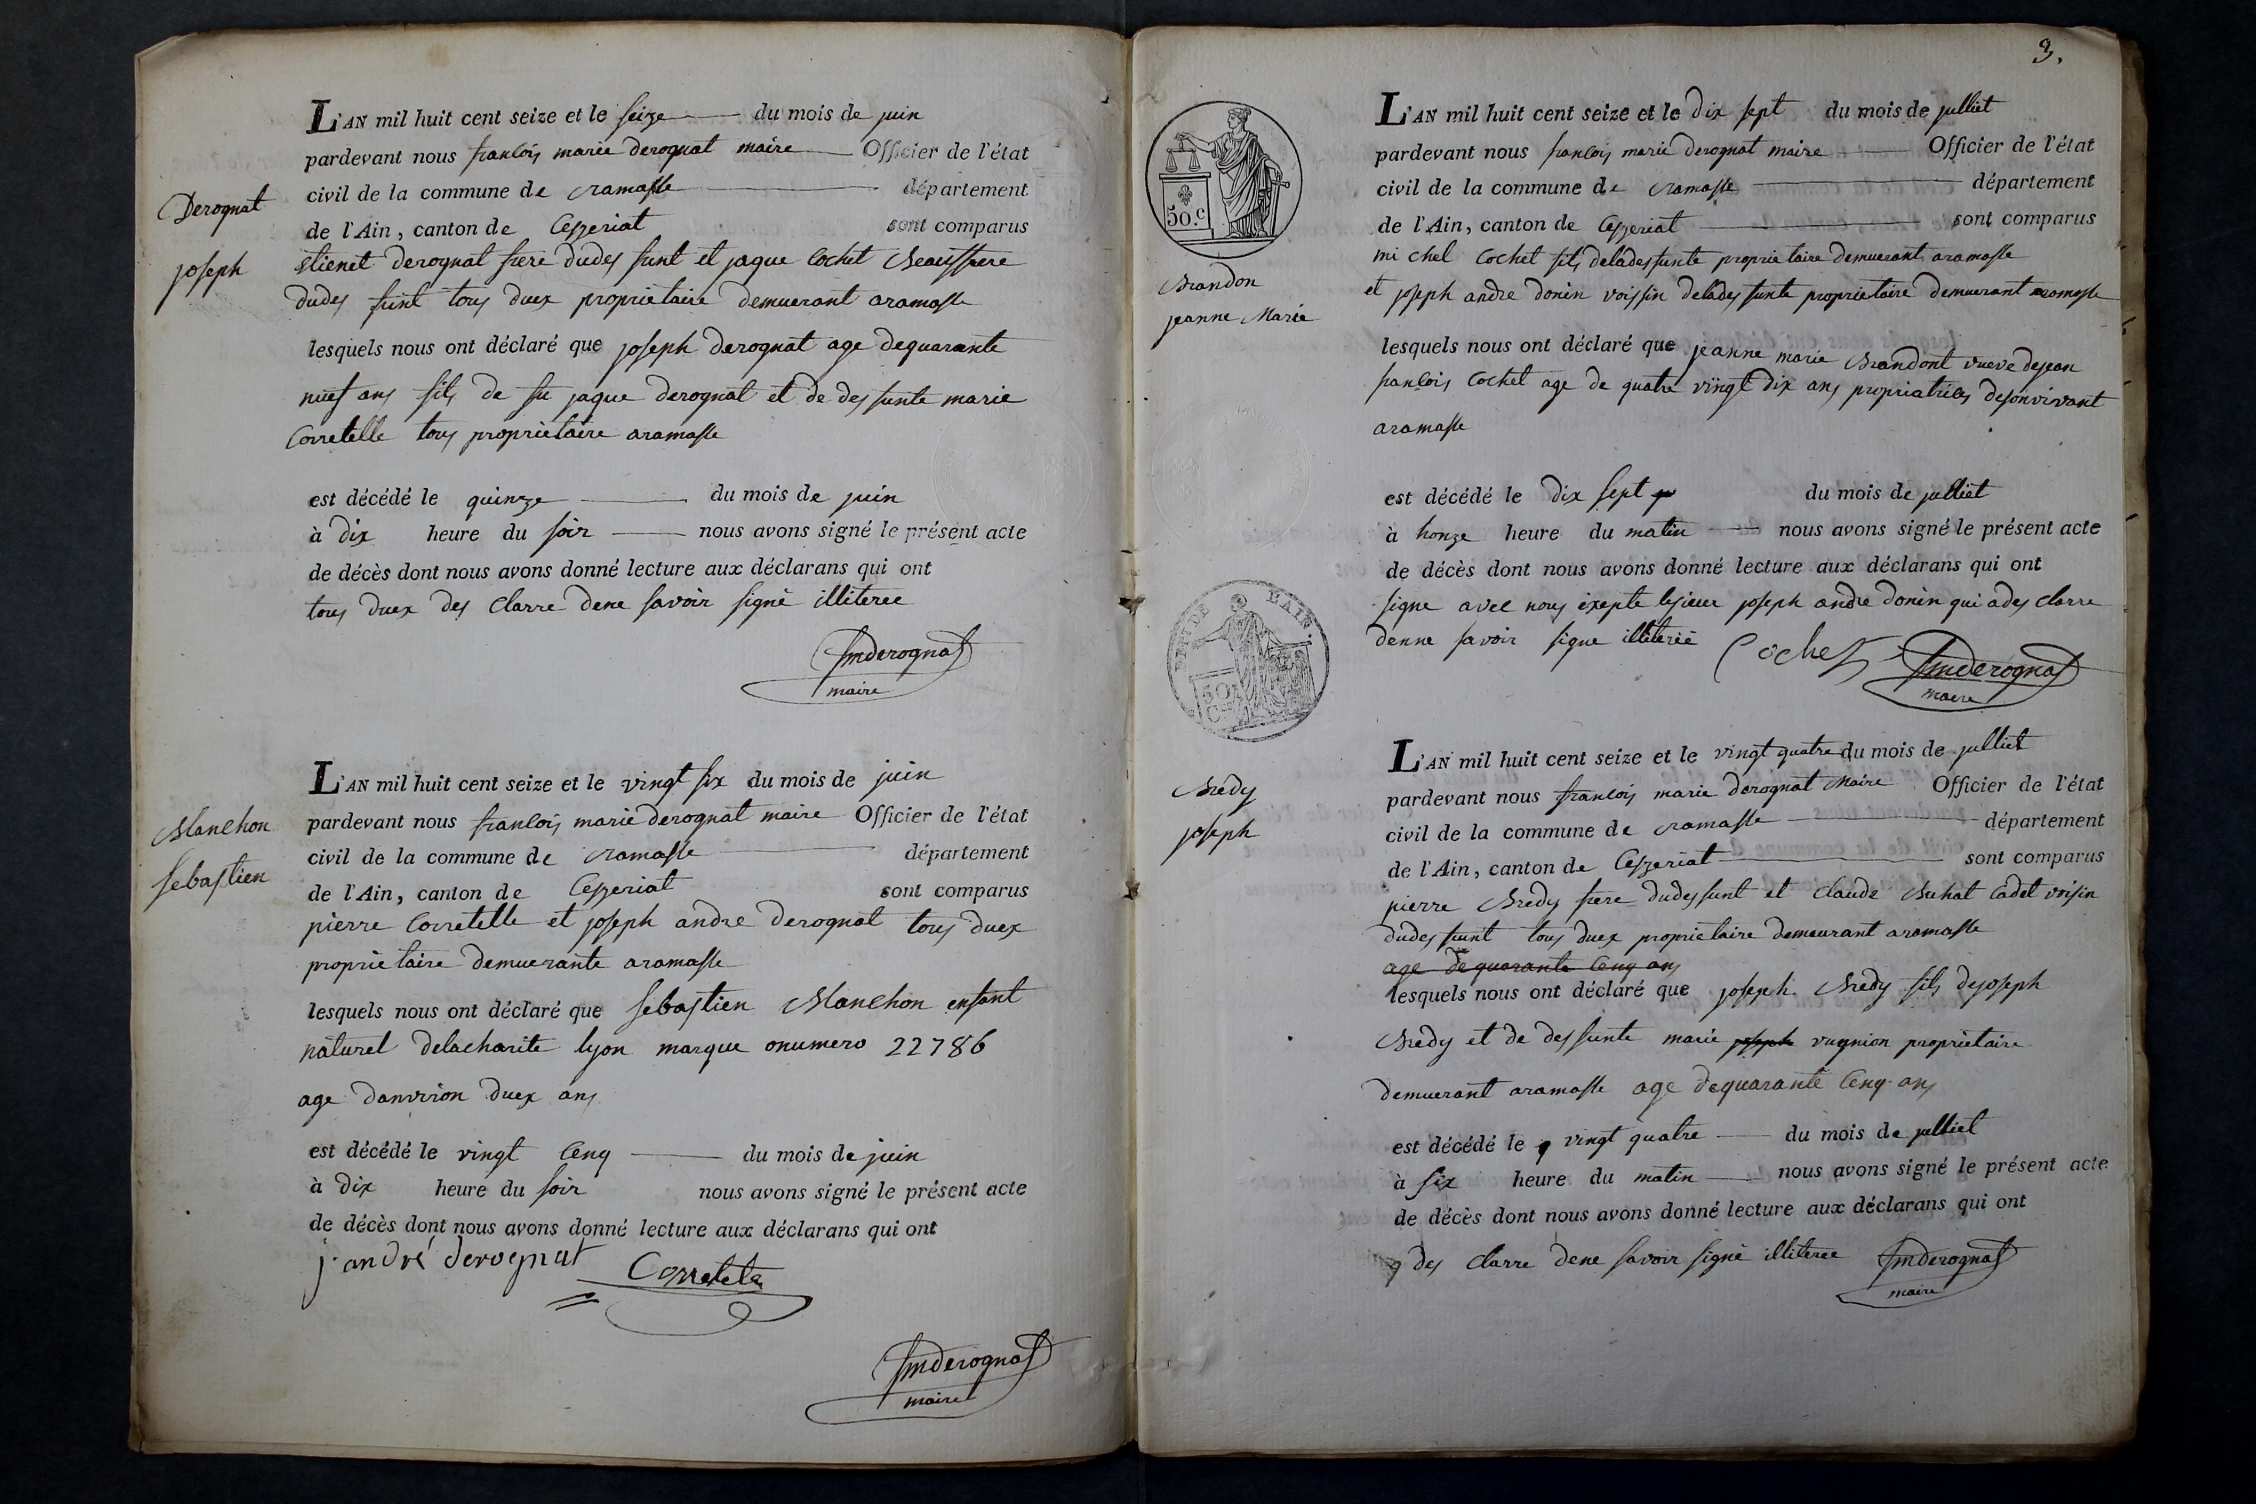 L'AN mil huit cent seize et le seize du mois de juin
pardevant nous francois marie derognat maire Officier de l'état
civil de la commune de ramasse département
de l'Ain, canton de Ceyzeriat sont comparus
Derognat
joseph
etienet derognat frere dudes funt et jaque Cochet Beaussfrere
dudes funt tous duex proprietaire demuerant aramasse
lesquels nous ont déclaré que joseph derognat age dequarante
nuef ans fils de fu jaque derognat et de des funte marie
Corretelle tous proprietaire aramasse
est décédé le quinze du mois de juin
à dix heure du soir nous avons signé le présent acte
de décès dont nous avons donné lecture aux déclarans qui ont
tous duex des Clarre dene savoir signé illiteree
fmderognat
maire
L'AN mil huit cent seize et le vingt six du mois de juin
pardevant nous francois marie derognat maire Officier de l'état
civil de la commune de ramasse département
de l'Ain, canton de Ceyzeriat sont comparus
Manchon
sebastien
pierre Corretelle et joseph andre derognat tous duex
proprietaire demuerante aramasse
lesquels nous ont déclaré que sebastien Manchon enfant
naturel delacharite lyon marque onumero 22786
age danviron duex ans
est décédé le vingt Cenq du mois de juin
à dix heure du soir nous avons signé le présent acte
de décès dont nous avons donné lecture aux déclarans qui ont
j. andré derognat Corretela
fmderognat
maire
3.
50.c
L'AN mil huit cent seize et le dix sept du mois de julliet
pardevant nous francois marie derognat maire Officier de l'état
civil de la commune de ramasse département
de l'Ain, canton de Ceyzeriat sont comparus
Brandon
jeanne Marie
mi chel Cochet fils deladesfunte proprie taire demuerant aramasse
et joseph andre donin voissin delades funte proprietaire demuerant aramasse
lesquels nous ont déclaré que jeanne marie Brandont vueve dejean
francois Cochet age de quatre vingt dix ans propriatrices desonvivant
aramasse
est décédé le dix sept du mois de julliet
à honze heure du matin nous avons signé le présent acte
de décès dont nous avons donné lecture aux déclarans qui ont
signe avec nous exepte lesieur joseph andre donin qui ades clarre
denne savoir signe illiteréé
Cochet fmderognat
maire
50
L'AN mil huit cent seize et le vingt quatre du mois de julliet
pardevant nous francois marie derognat Maire Officier de l'état
civil de la commune de ramasse département
de l'Ain, canton de Ceyzeriat sont comparus
Bredy
joseph
pierre Bredy frere dudesfunt et Claude Buhat Cadet voisin
dudes funt tous duex proprietaire demeurant aramasse
age de quarante Cenq ans
lesquels nous ont déclaré que joseph Bredy fils dejoseph
Bredy et de des funte marie joseph vugnion proprietaire
demuerant aramasse age dequarante Cenq ans
est décédé le vingt quatre du mois de julliet
à six heure du matin nous avons signé le présent acte
de décès dont nous avons donné lecture aux déclarans qui ont
des Clarre dene savoir signé illiteree
fmderognat
maire